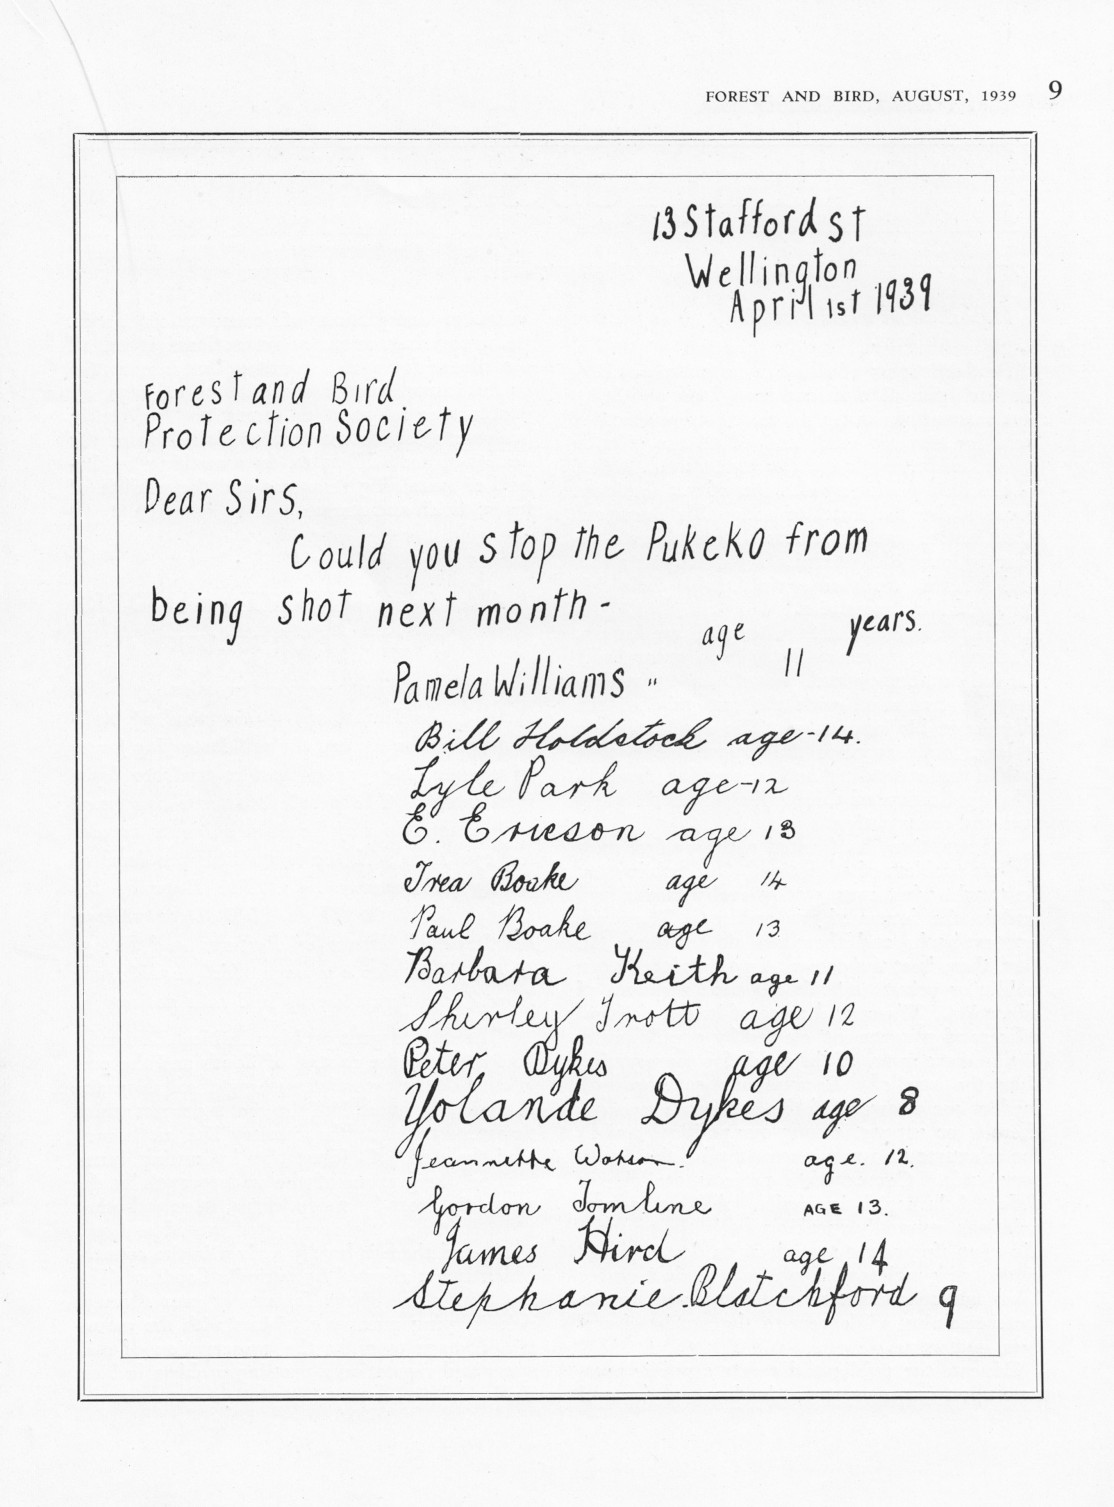 FOREST AND BIRD, AUGUST, 1939 9
13 Stafford St
Wellington
April 1st 1939
Forest and Bird
Protection Society
Dear Sirs,
Could you stop the Pukeko from
being shot next month -
age years.
Pamela Williams " 11
Bill Holdstock age - 14.
Lyle Park age - 12
E. Ericson age 13
Trea Boake age 14
Paul Boake age 13
Barbara Keith age 11
Shirley Trott age 12
Peter Dykes age 10
Yolande Dykes age 8
Jeannette Watson. age. 12.
Gordon Tomline AGE 13.
James Hird age 14
Stephanie. Blatchford 9